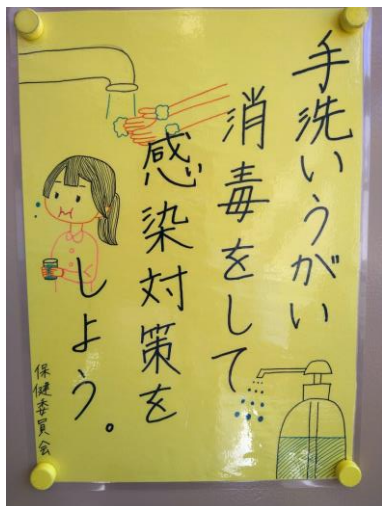 手洗いうがい
消毒をして
感染対策を
しよう。
保健委員会